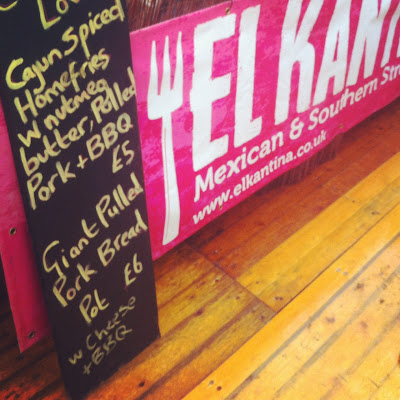 Lo
Cajun Spiced
Homefries
w nutmeg
butter, Pulled
Pork + BBQ
£5
Giant Pulled
Pork Bread
Pot £6
w Cheese
+ BBQ
EL KANTI
Mexican & Southern Stre
www.elkantina.co.uk